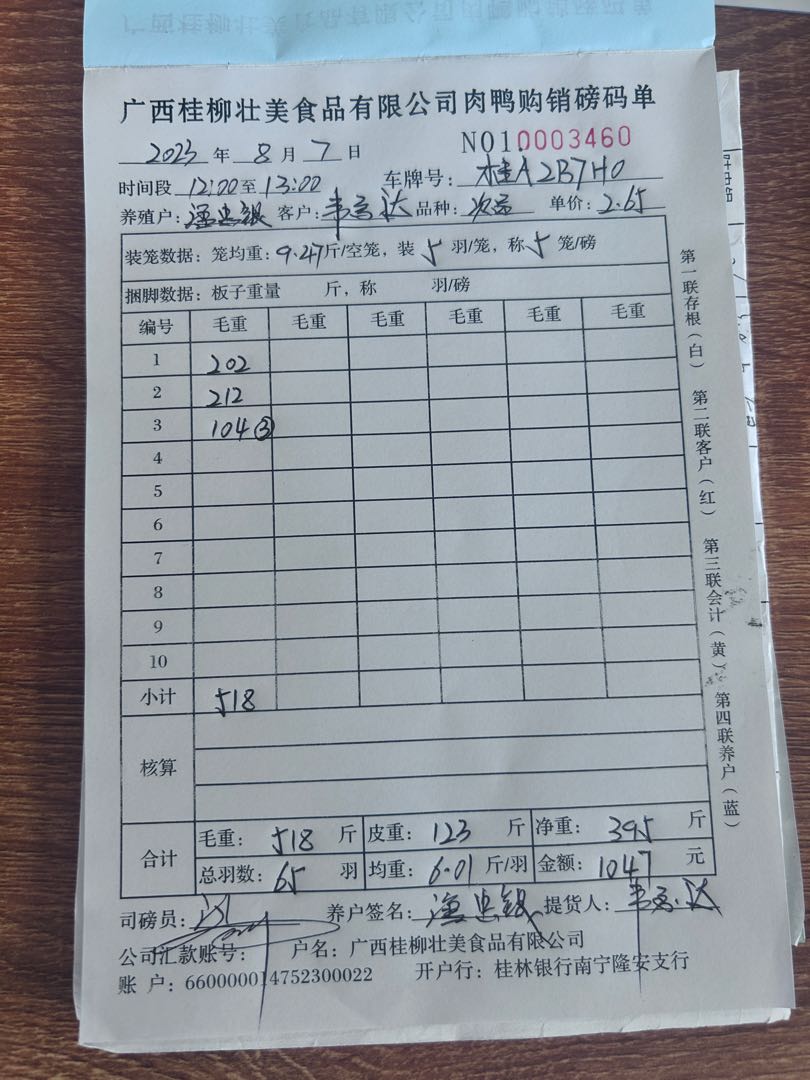 广西桂柳壮美食品有限公司肉鸭购销磅码单
2023 年 8 月 7 日 NO10003460
时间段 12:00 至 13:00 车牌号: 桂A2B7H0
养殖户: 客户: 达 品种: 单价: 2.65
装笼数据: 笼均重: 9.47斤/空笼, 装 5 羽/笼, 称 5 笼/磅
捆脚数据: 板子重量 斤, 称 羽/磅
编号 毛重 毛重 毛重 毛重 毛重 毛重
1 202
2 212
3 104③
4
5
6
7
8
9
10
小计 518
核算
合计
毛重: 518 斤 皮重: 123 斤 净重: 395 斤
总羽数: 65 羽 均重: 6.01 斤/羽 金额: 1047 元
司磅员: 养户签名: 提货人: 达
公司汇款账号: 户名: 广西桂柳壮美食品有限公司
账 户: 660000014752300022 开户行: 桂林银行南宁隆安支行
第一联存根(白)
第二联客户(红)
第三联会计(黄)
第四联养户(蓝)